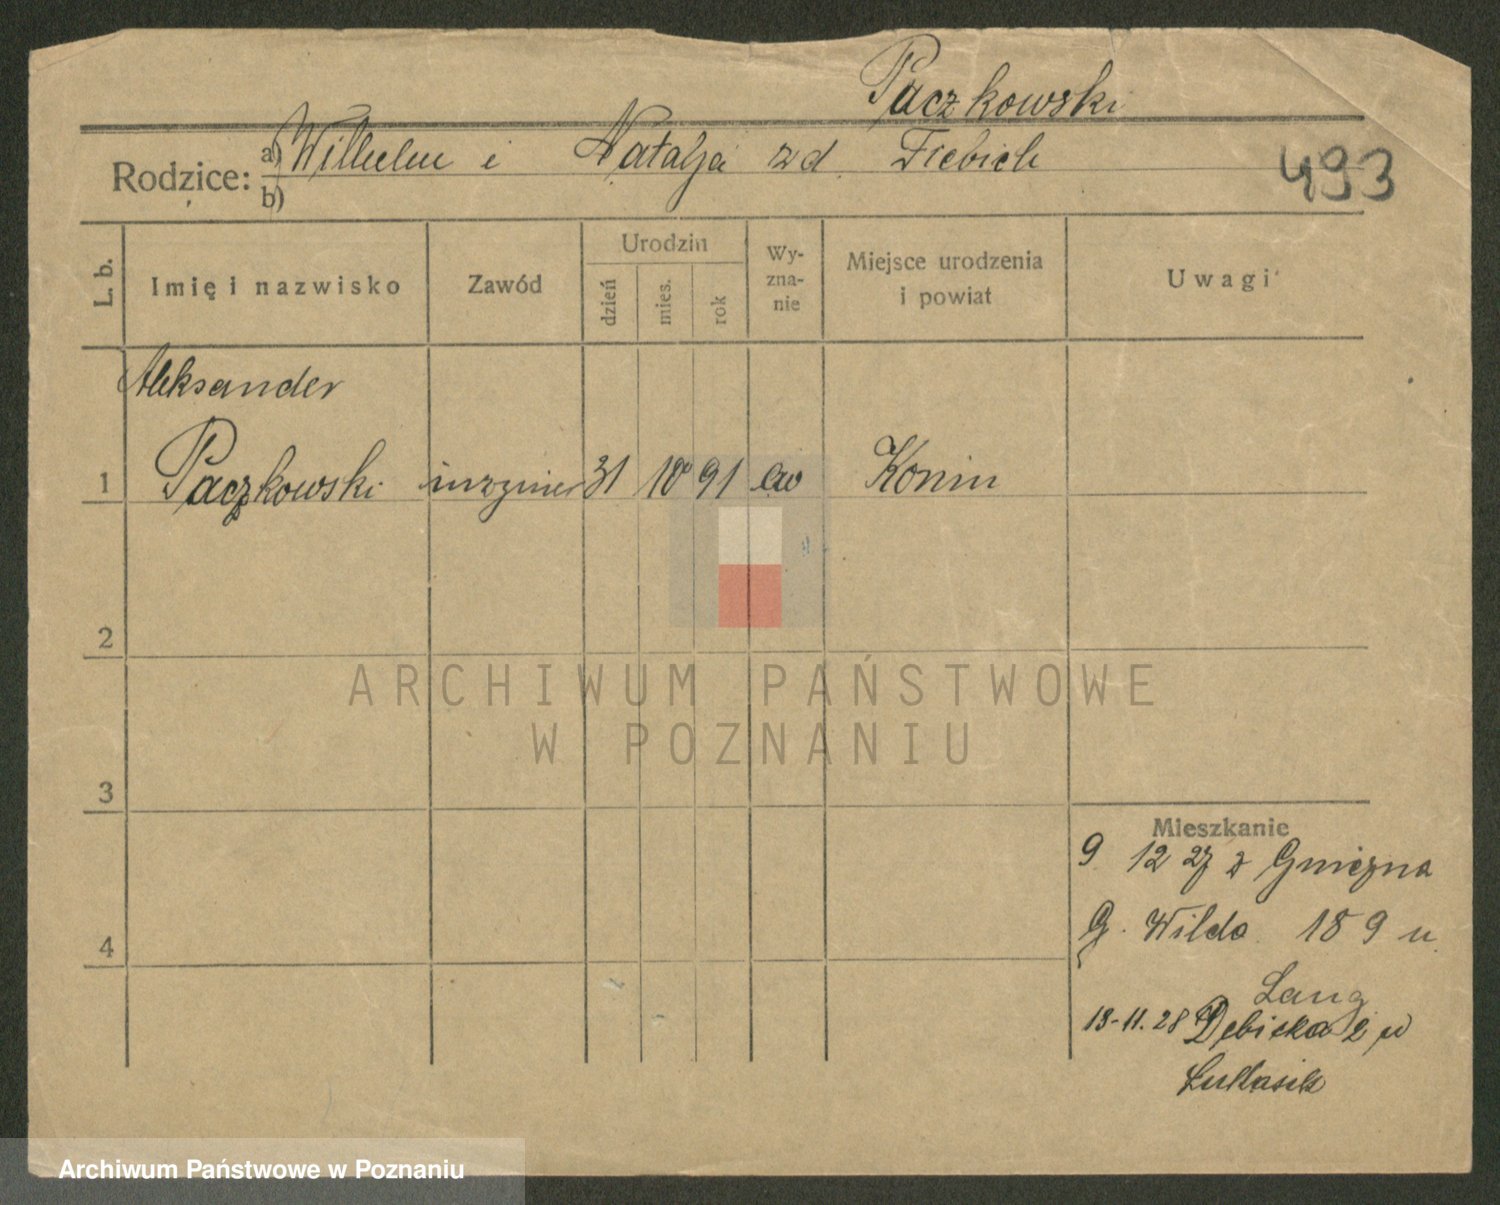 Paczkowski
Rodzice: a) Wilhelm i Natalja zd. Fiebich
b)
493
L. b.
Imię i nazwisko
Zawód
Urodzin
dzień
mies.
rok
Wy-
zna-
nie
Miejsce urodzenia
i powiat
Uwagi
Aleksander
1 Paczkowski inżynier 31 10 91 ew Konin
2
ARCHIWUM PAŃSTWOWE
W POZNANIU
3
Mieszkanie
9 12 27 z Gniezna
4
G. Wilda 189 u
Lang
13-11.28 Dębicka 2 u
Łukasik
Archiwum Państwowe w Poznaniu